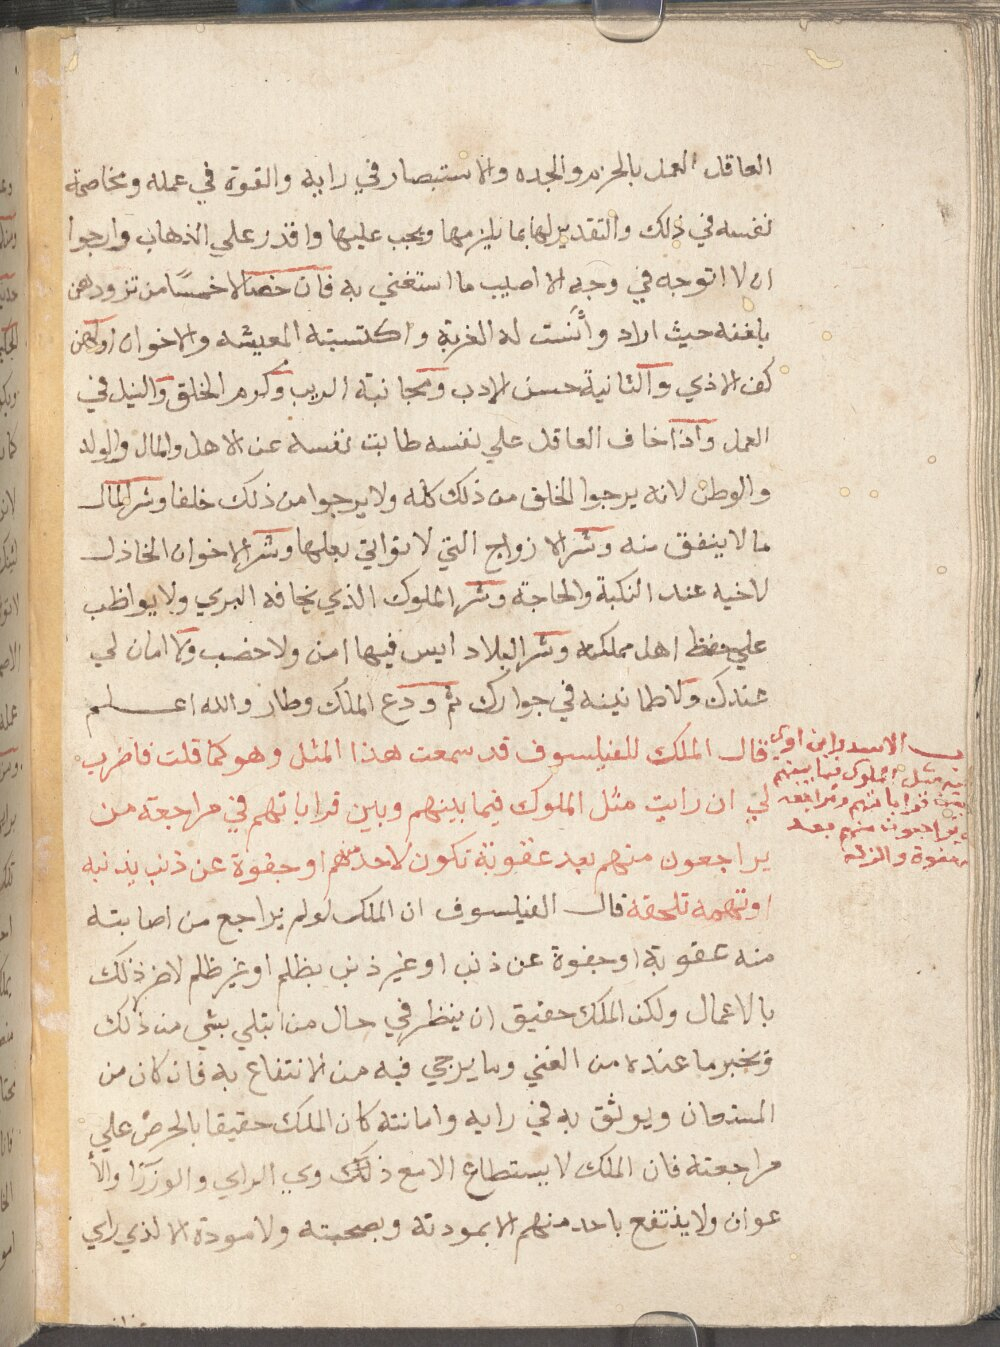 العاقل العمل بالحزم والجده والاستبصار في رايه والقوة في عمله ومخاصمة
نفسه في ذلك والتقدير لها بما يلزمها ويجب عليها واقدر علي الذهاب وارجوا
ان لا اتوجه في وجه الا اصيب ما استغني به فان خصالا خمسًا من تزودهن
بلغنه حيث اراد وأنست له الغربة واكتسبته المعيشه والاخوان اولهن
كف الاذي والثانية حسن الادب ومجانبة الريب وكرم الخلق والنيل في
العمل واذا خاف العاقل علي نفسه طابت نفسه عن الاهل والمال والولد
والوطن لانه يرجوا الخلق من ذلك كله ولا يرجوا من ذلك خلفا وشر المال
ما لا ينفق منه وشر الازواج التي لا تواتي بعلها وشر الاخوان الخاذل
لاخيه عند النكبة والحاجة وشر الملوك الذي يخافه البري ولا يواظب
علي حفظ اهل مملكته وشر البلاد ايس فيها امن ولا خصب ولا امان لي
عندك ولا طمانينه في جوارك ثم ودع الملك وطار والله اعلم
قال الملك للفيلسوف قد سمعت هذا المثل وهو كما قلت فاضرب
لي ان رايت مثل الملوك فيما بينهم وبين قراباتهم في مراجعة من
يراجعون منهم بعد عقوبة تكون لاحد منهم او جفوة عن ذنب يذنبه
او تهمة تلحقه قال الفيلسوف ان الملك لو لم يراجع من اصابته
منه عقوبة او جفوة عن ذنب او غير ذنب بظلم او غير ظلم لاضر ذلك
بالاعمال ولكن الملك حقيق ان ينظر في حال من ابتلي بشي من ذلك
ويخبر ما عنده من الغني وما يرجي فيه من الانتفاع به فان كان من
المستعان ويوثق به في رايه وامانته كان الملك حقيقا بالحرص علي
مراجعته فان الملك لا يستطاع الا مع ذلك وي الراي والوزرآء والأ
عوان ولا ينتفع باحد منهم الا بمودتة وبصحبته ولا مودة الا لذي راي
الاسد وابن اوي
مثل الملوك فيما بينهم
وبين قراباتهم ومراجعه
يراجعون منهم بعد
جفوة والزلة